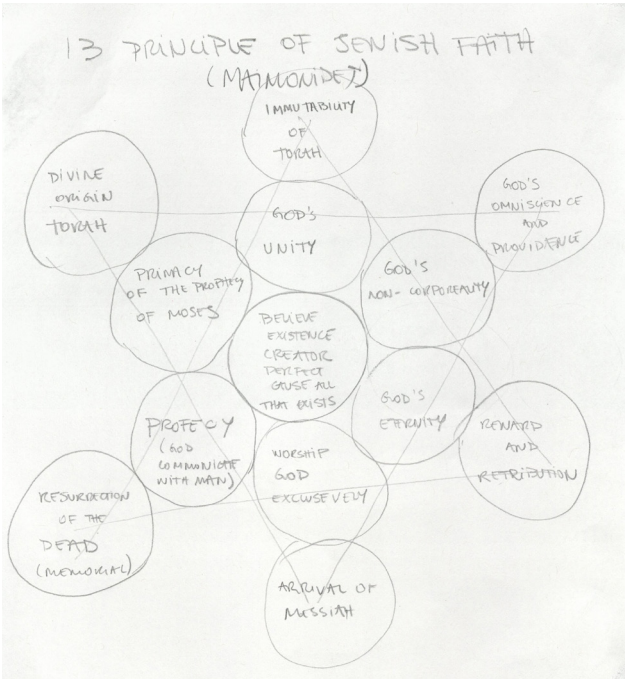 13 PRINCIPLE OF JEWISH FAITH
(MAIMONIDES)
IMMUTABILITY
OF
TORAH
DIVINE
ORIGIN
TORAH
GOD'S
OMNISCIENCE
AND
PROVIDENCE
GOD'S
UNITY
PRIMACY
OF THE PROPHEY
OF MOSES
GOD'S
NON-CORPOREALITY
BELIEVE
EXISTENCE
CREATOR
PERFECT
CAUSE ALL
THAT EXISTS
GOD'S
ETERNITY
PROFECY
(GOD
COMMONICATE
WITH MAN)
WORSHIP
GOD
EXCLUSEVELY
REWARD
AND
RETRIBUTION
RESURRECTION
OF THE
DEAD
(MEMORIAL)
ARRIVAL OF
MESSIAH